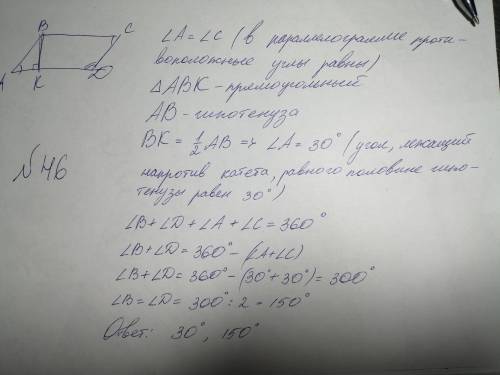 B C
A K D
∠A = ∠C (в параллелограмме проти-
воположные углы равны)
△ABK - прямоугольный
AB - гипотенуза
BK = 1/2 AB => ∠A = 30° (угол, лежащий
№46
напротив катета, равного половине гипо-
тенузы равен 30°)
∠B + ∠D + ∠A + ∠C = 360°
∠B + ∠D = 360° - (∠A + ∠C)
∠B + ∠D = 360° - (30° + 30°) = 300°
∠B = ∠D = 300° : 2 = 150°
Ответ: 30°, 150°